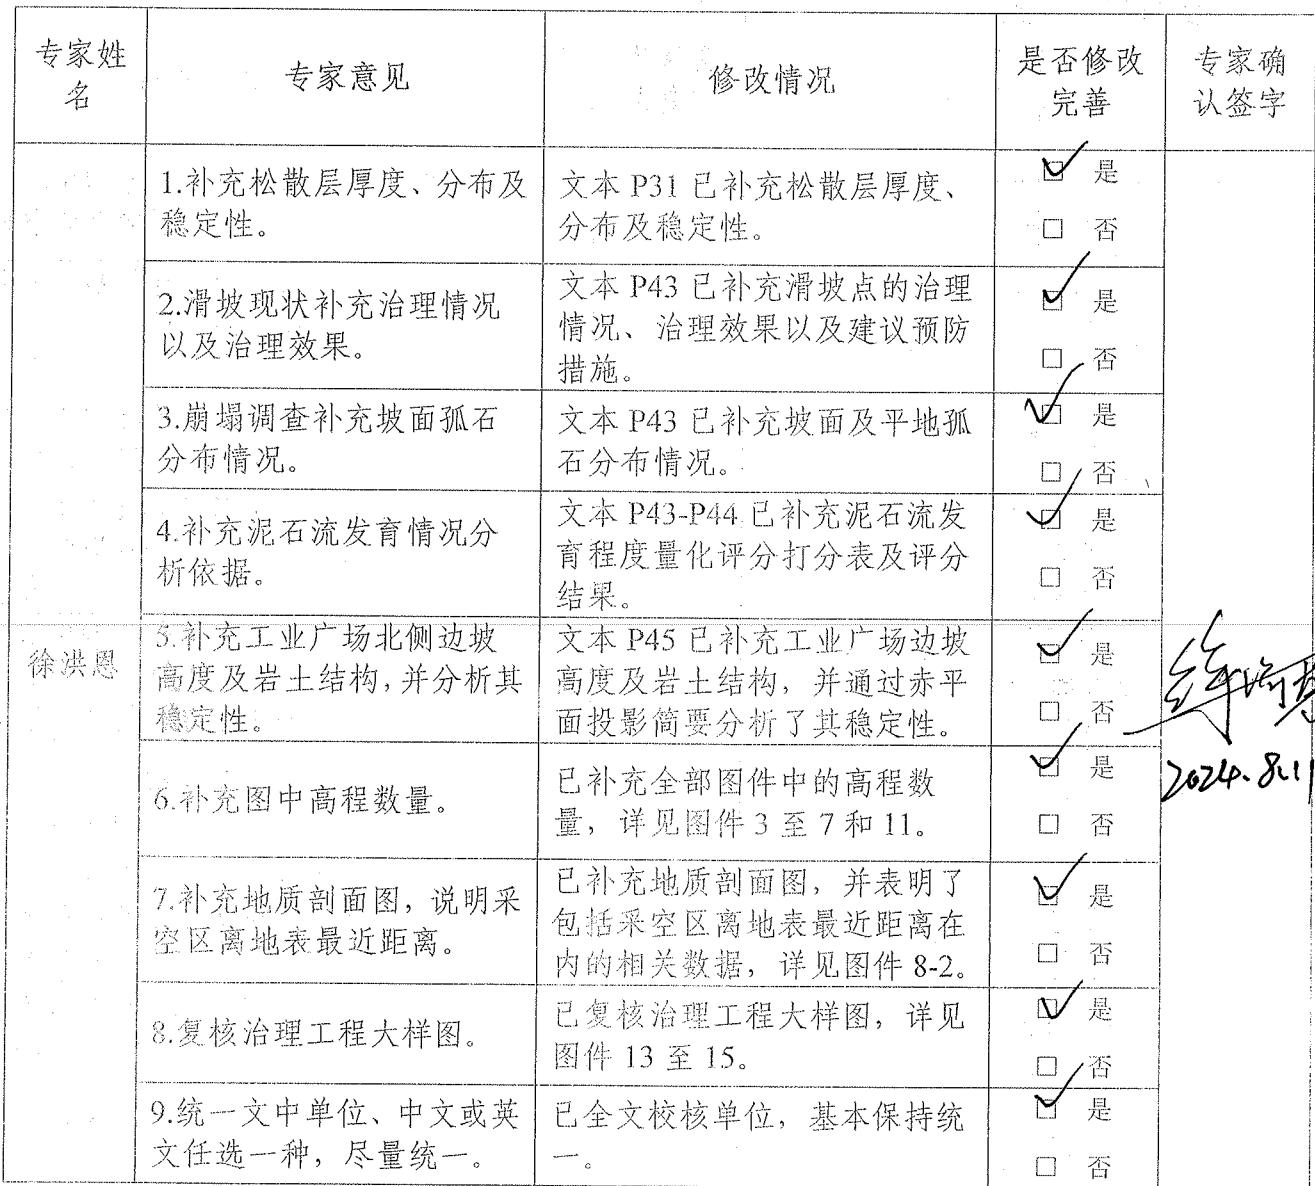 专家姓名
专家意见
修改情况
是否修改
完善
专家确
认签字
徐洪恩
1.补充松散层厚度、分布及
稳定性。
文本 P31 已补充松散层厚度、
分布及稳定性。
☑ 是
□ 否
2.滑坡现状补充治理情况
以及治理效果。
文本 P43 已补充滑坡点的治理
情况、治理效果以及建议预防
措施。
☑ 是
□ 否
3.崩塌调查补充坡面孤石
分布情况。
文本 P43 已补充坡面及平地孤
石分布情况。
☑ 是
□ 否
4.补充泥石流发育情况分
析依据。
文本 P43-P44 已补充泥石流发
育程度量化评分打分表及评分
结果。
☑ 是
□ 否
5.补充工业广场北侧边坡
高度及岩土结构,并分析其
稳定性。
文本 P45 已补充工业广场边坡
高度及岩土结构，并通过赤平
面投影简要分析了其稳定性。
☑ 是
□ 否
6.补充图中高程数量。
已补充全部图件中的高程数
量，详见图件 3 至 7 和 11。
☑ 是
□ 否
2024.8.11
7.补充地质剖面图，说明采
空区离地表最近距离。
已补充地质剖面图，并表明了
包括采空区离地表最近距离在
内的相关数据，详见图件 8-2。
☑ 是
□ 否
8.复核治理工程大样图。
已复核治理工程大样图，详见
图件 13 至 15。
☑ 是
□ 否
9.统一文中单位、中文或英
文任选一种，尽量统一。
已全文校核单位，基本保持统
一。
☑ 是
□ 否